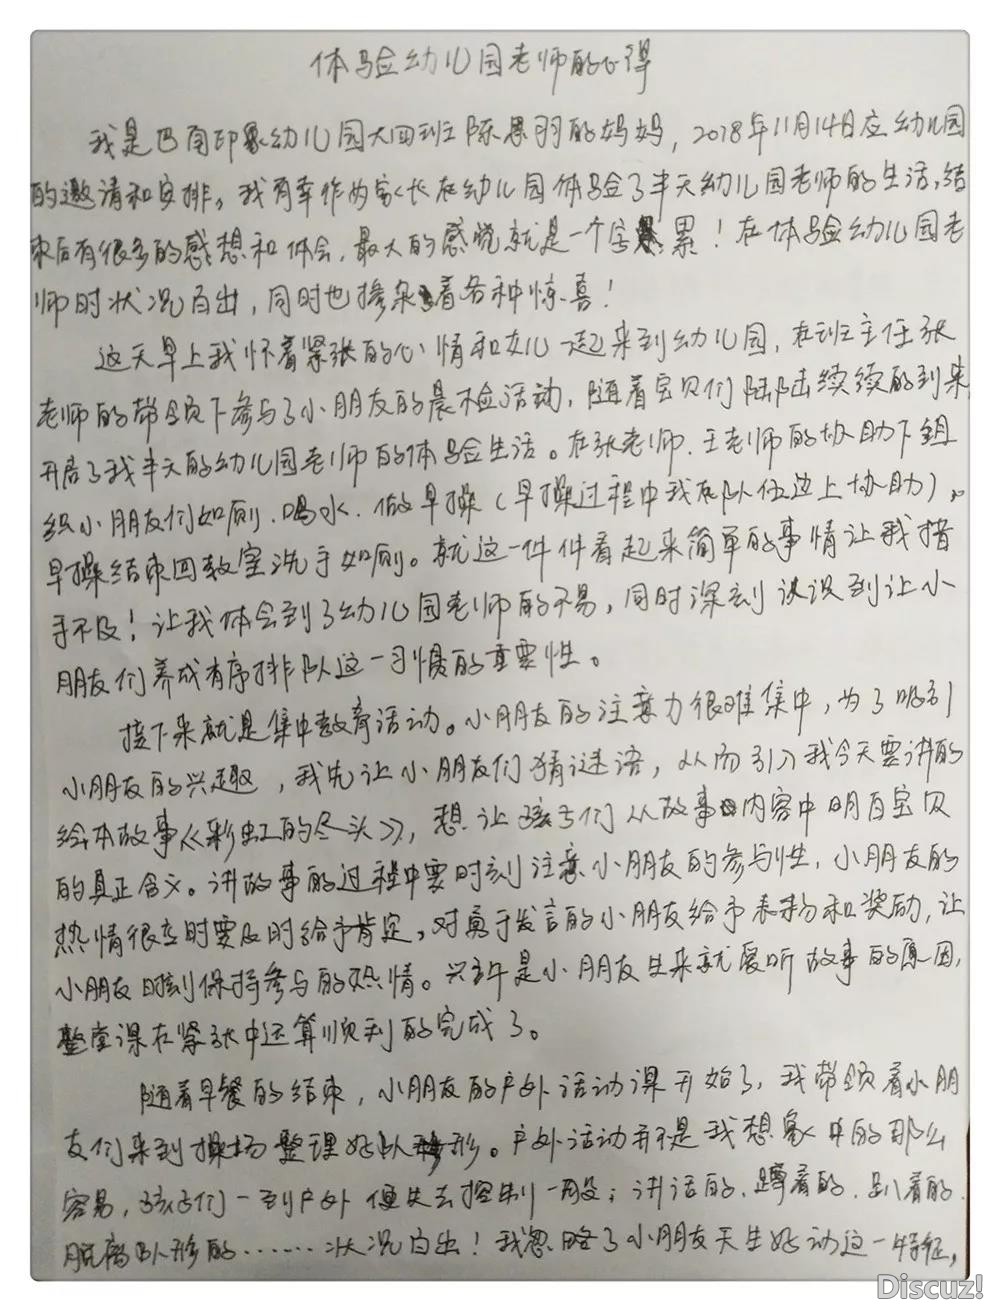 体验幼儿园老师的心得
我是巴南印象幼儿园大四班陈思羽的妈妈，2018年11月14日应幼儿园
的邀请和安排。我有幸作为家长在幼儿园体验了半天幼儿园老师的生活，结
束后有很多的感想和体会，最大的感觉就是一个字累！在体验幼儿园老
师时状况百出，同时也掺杂着各种惊喜！
这天早上我怀着紧张的心情和女儿一起来到幼儿园，在班主任张
老师的带领下参与了小朋友的晨检活动，随着宝贝们陆陆续续的到来
开启了我半天的幼儿园老师的体验生活。在张老师．王老师的协助下组
织小朋友们如厕．喝水．做早操（早操过程中我在队伍边上协助）。
早操结束回教室洗手如厕。就这一件件看起来简单的事情让我措
手不及！让我体会到了幼儿园老师的不易，同时深刻认识到让小
朋友们养成有序排队这一习惯的重要性。
接下来就是集中教育活动。小朋友的注意力很难集中，为了吸引
小朋友的兴趣，我先让小朋友们猜谜语，从而引入我今天要讲的
绘本故事《彩虹的尽头》，想让孩子们从故事内容中明白宝贝
的真正含义。讲故事的过程中要时刻注意小朋友的参与性，小朋友的
热情很高时要及时给予肯定，对勇于发言的小朋友给予表扬和奖励，让
小朋友时刻保持参与的热情。兴许是小朋友生来就爱听故事的原因，
整堂课在紧张中还算顺利的完成了。
随着早餐的结束，小朋友的户外活动课开始了，我带领着小朋
友们来到操场整理好队形。户外活动并不是我想象中的那么
容易，孩子们一到户外便失去控制一般；讲话的．蹲着的．趴着的．
脱离队形的……状况百出！我忽略了小朋友天生好动这一特征，
Discuz!